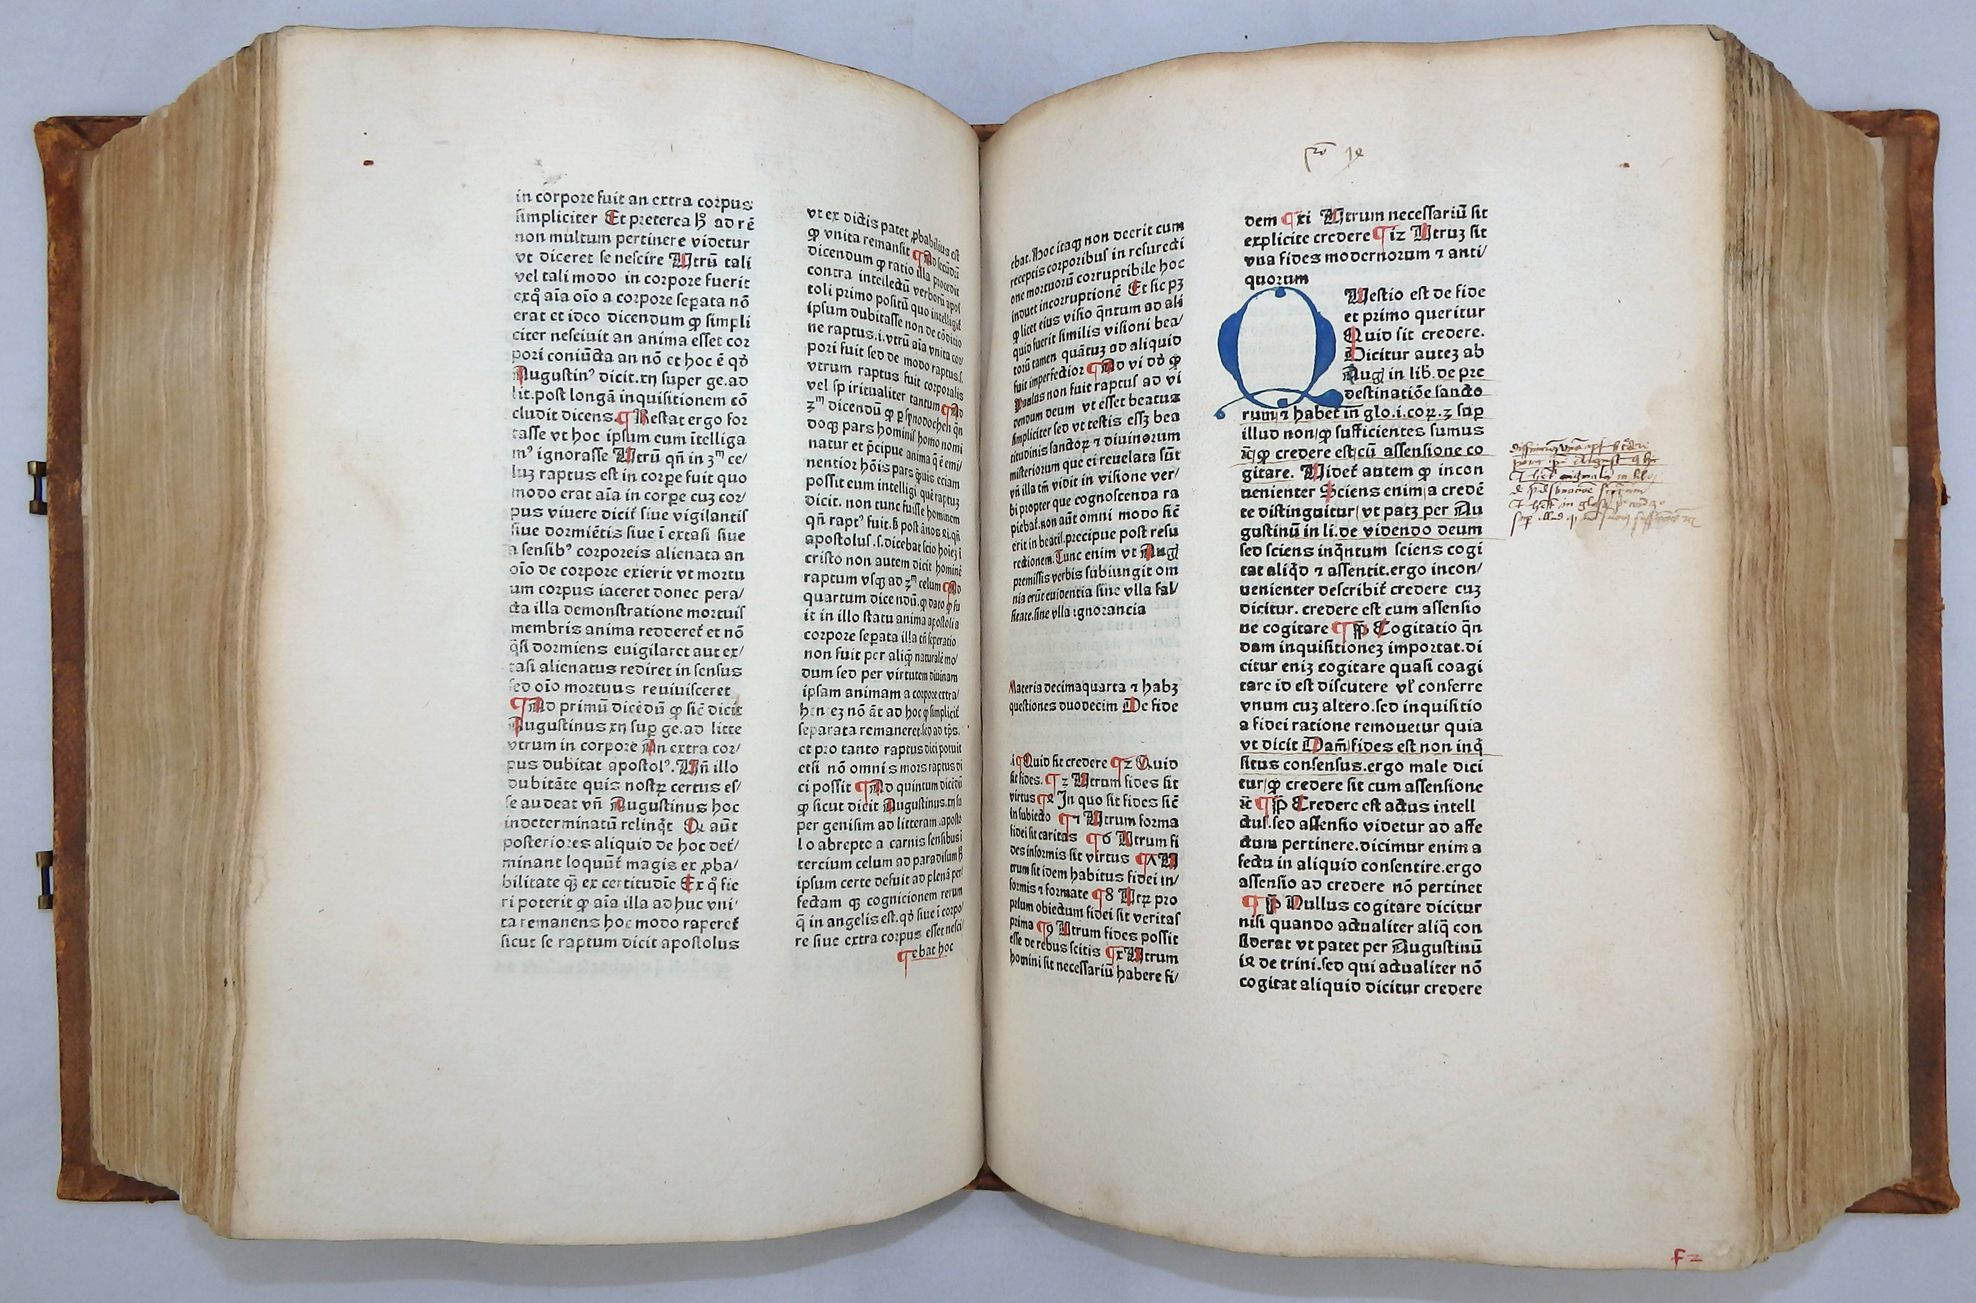 in corpore fuit an extra corpus
simpliciter Et preterea hͦ ad rē
non multum pertinere videtur
vt diceret se nescire Utrū tali
vel tali modo in corpore fuerit
exqͥ aīa oīo a corpore seꝑata nō
erat et ideo dicendum ꝙ simpli
citer nesciuit an anima esset cor
pori coniūcta an nō et hoc ē qḋ
Augustinꝰ dicit.xij super ge.ad
lit.post longā inquisitionem cō
cludit dicens.¶Restat ergo for
tasse vt hoc ipsum cum ītelliga
mꝰ ignorasse Utrū qñ in 3ᵐ ce/
luꝫ raptus est in corꝑe fuit quo
modo erat aīa in corꝑe cuꝫ cor/
pus viuere dicit̄ siue vigilantis
siue dormiētis siue ī extasi siue
a sensibꝰ corporeis alienata an
oīo de corpore exierit vt mortu
um corpus iaceret donec pera/
cta illa demonstratione mortuis
membris anima redderet̄ et nō
q̄si dormiens euigilaret aut ex/
tasi alienatus rediret in sensus
sed oīo mortuus reuiuisceret
¶Ad primū dicēdū ꝙ sic̄ dicit
Augustinus xij suꝑ ge.ad litte
vtrum in corpore An extra cor/
pus dubitat apostolꝰ.Un̄ illo
dubitāte quis nostrꝝ certus es/
se audeat vn̄ Augustinus hoc
indeterminatū relinq̄t Qͥ aūt
posteriores aliquid de hoc det̄/
minant loquūt̄ magis ex ꝓba/
bilitate qͣꝫ ex certitudīe Ex qͦ sic
ri poterit ꝙ aīa illa adhuc vni/
ta remanens hoc modo raperet̄
sicut se raptum dicit apostolus
vt ex dictis patet ꝓbabilius est
ꝙ vnita remansit ¶Ad secūdū
dicendum ꝙ ratio illa procedit
contra intellectū verborū apos
toli primo positū quo intelligit̄
ipsum dubitasse non de cōditio
ne raptus.i.vtrū aīa vnita cor
pori fuit sed de modo raptus.s.
vtrum raptus fuit corporalis
vel spiritualiter tantum ¶Ad
3ᵐ dicendū ꝙ ꝑ synodochen qn̄
doqꝫ pars hominis homo nomi
natur et p̄cipue anima q̄ ē emi/
nentior hōis pars quis eciam
possit eum intelligi quē raptuꝫ
dicit. non tunc fuisse hominem
qn̄ raptꝰ fuit.ß post ānos xi.qn̄
apostolus.s.dicebat scio hoīeꝫ ī
cristo non autem dicit hominē
raptum vsqꝫ ad 3ᵐ celum ¶Ad
quartum dicendū.ꝙ dato ꝙ fu
it in illo statu anima apostoli a
corpore seꝑata illa tn̄ seperatio
non fuit per aliqͥ naturalē mo/
dum sed per virtutem diuinam
ipsam animam a corpore extra/
hentez nō āt ad hoc ꝙ simplicit̄
separata remaneret.sed ad tp̄s.
et pro tanto raptus dici potuit
etsi nō omnis mors raptus di
ci possit ¶Ad quintum dicēdū
ꝙ sicut dicit Augustinus.xij su
per genisim ad litteram.aposto
lo abrepto a carnis sensibus i
tercium celum ad paradisum ß
ipsum certe defuit ad plenā per
fectam qꝫ cognicionem rerum
q̄ in angelis est.qḋ siue ī corpo/
re siue extra corpus esset nesci/
¶ebat hoc
ebat.Hoc itaqꝫ non deerit cum
receptis corporibus in resurecti
one mortuorū corruptibile hoc
induet incorruptionē Et sic pꝫ
ꝙ licet eius visio q̄ntum ad ali
quid fuerit similis visioni bea/
torū tamen quātuꝫ ad aliquid
fuit imperfectior ¶Ad vi dḋ ꝙ
Paulus non fuit raptus ad vi
dendum deum vt esset beatus
simpliciter sed vt testis essꝫ bea
titudinis sanctoꝝ ⁊ diuinorum
misteriorum que ei reuelata sūt
vn̄ illa tm̄ vidit in visione ver/
bi propter que cognoscenda ra
piebat̄.non aūt omni modo sic̄
erit in beatis.precipue post resu
rectionem.Tunc enim vt Augꝰ
premissis verbis subiungit om
nia erūt euidentia sine vlla fal/
sitate.sine vlla ignorancia
Materia decimaquarta ⁊ habꝫ
questiones duodecim De fide
.i¶Quid sit credere ¶2 Quid
sit fides.¶2 Utrum fides sit
virtus ¶ In quo sit fides sic̄
in subiecto ¶ Utrum forma
fidei sit caritas ¶6 Utrum fi
des informis sit virtus ¶Λ U
trum sit idem habitus fidei in/
formis ⁊ formate ¶8 Utꝝ pro
prium obiectum fidei sit veritas
prima ¶9 Utrum fides possit
esse de rebus scitis ¶x Utrum
homini sit necessariū habere fi/
dem ¶xi Utrum necessariū sit
explicite credere ¶12 Utruꝫ sit
vna fides modernorum ⁊ anti/
quorum
QUestio est de fide
et primo queritur
Quid sit credere.
Dicitur auteꝫ ab
Augꝰ in lib.de pre
destinatiōe sancto
rum ⁊ habet̄ in glo.i.coꝝ.3 suꝑ
illud non ꝙ sufficientes sumus
ꝛc̄ ꝙ credere est cū assensione co
gitare. Uidet̄ autem ꝙ incon
uenienter Sciens enim a credē
te distinguitur vt patꝫ per Au
gustinū in li.de videndo deum
sed sciens inq̄ntum sciens cogi
tat aliqͥd ⁊ assentit.ergo incon/
uenienter describit̄ credere cuꝫ
dicitur. credere est cum assensio
ne cogitare ¶Pͤ Cogitatio qn̄
dam inquisitioneꝫ importat.di
citur eniꝫ cogitare quasi coagi
tare id est discutere vl̄ conferre
vnum cuꝫ altero.sed inquisitio
a fidei ratione remouetur quia
vt dicit Dam̄ fides est non inqͥ
situs consensus.ergo male dici
tur ꝙ credere sit cum assensione
ꝛc̄ ¶Pͤ Credere est actus intell
ctus.sed assensio videtur ad affe
ctum pertinere.dicimur enim a
fectu in aliquid consentire.ergo
assensio ad credere nō pertinet
¶Pͤ Nullus cogitare dicitur
nisi quando actualiter aliqͣ con
siderat vt patet per Augustinū
iɡ de trini.sed qui actualiter nō
cogitat aliquid dicitur credere
f 2